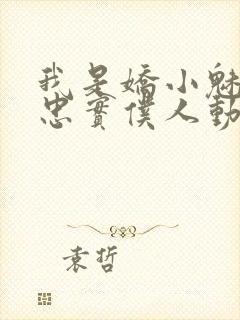 我是嬌小魅
忠實僕人動
袁哲